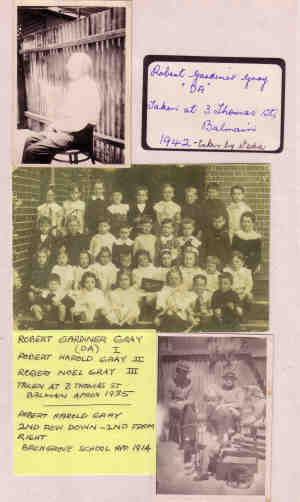 Robert Gardiner Gray
"DA"
Taken at 3 Thomas St,
Balmain
1942 - taken by
ROBERT GARDINER GRAY
(DA) I
ROBERT HAROLD GRAY II
ROBERT NOEL GRAY III
TAKEN AT 3 THOMAS ST
BALMAIN APROX 1935
ROBERT HAROLD GRAY
2ND ROW DOWN - 2ND FROM
RIGHT
SCHOOL APP. 1914